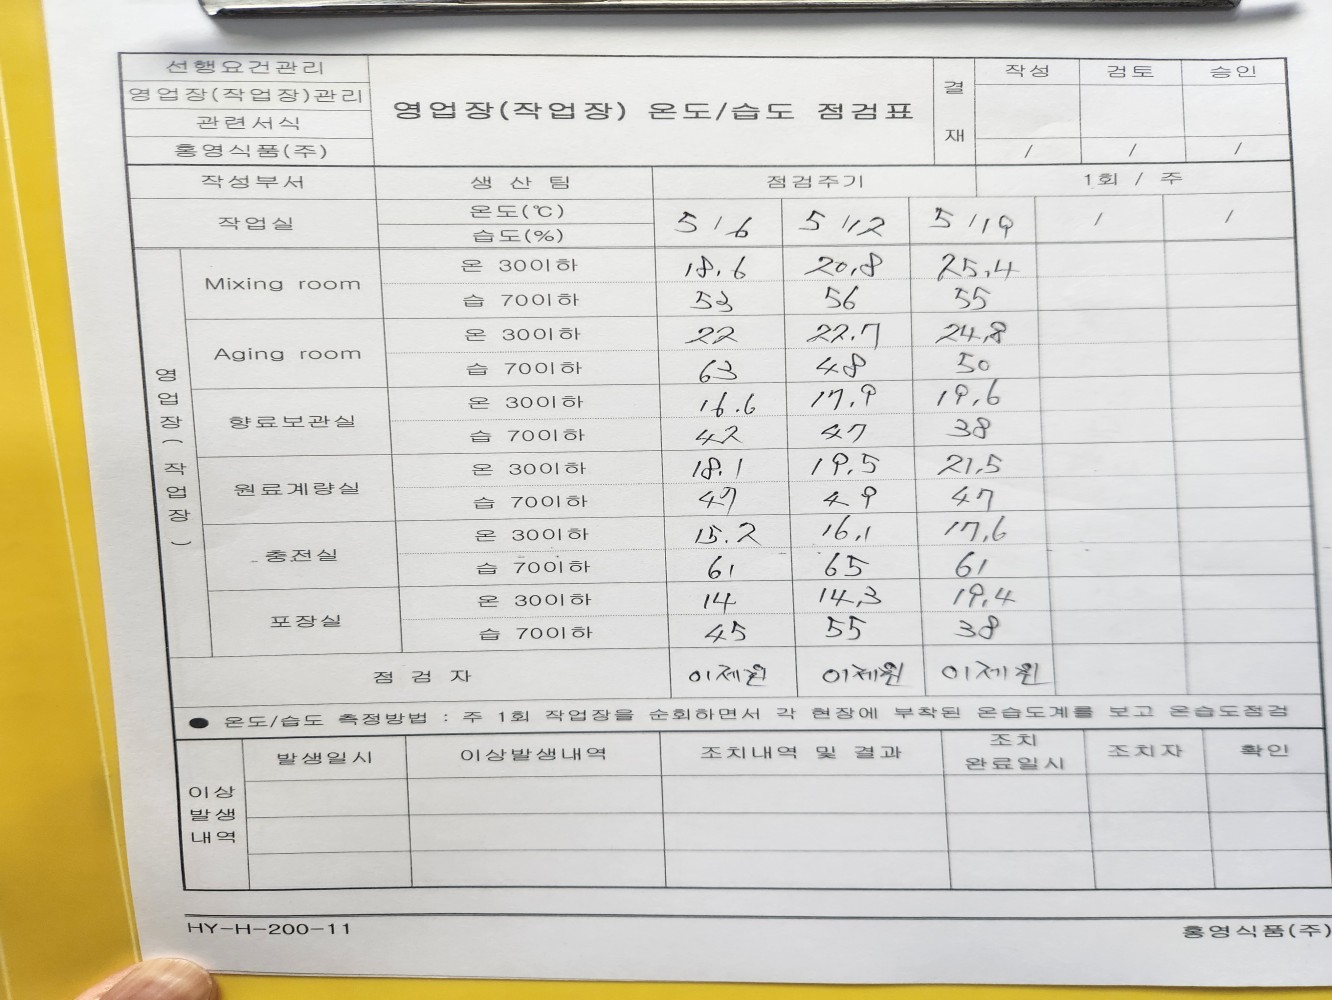 선행요건관리
영업장(작업장)관리
관련서식
홍영식품(주)
영업장(작업장) 온도/습도 점검표
결재 작성 검토 승인
/ / /
작성부서 생산팀 점검주기 1회 / 주
작업실 온도(℃) 습도(%) 5/6 5/12 5/19 / /
영업장(작업장)
Mixing room 온 30이하 18.6 20.8 25.4
습 70이하 53 56 55
Aging room 온 30이하 22 22.7 24.8
습 70이하 63 48 50
향료보관실 온 30이하 16.6 17.9 19.6
습 70이하 42 47 38
원료계량실 온 30이하 18.1 19.5 21.5
습 70이하 47 49 47
충전실 온 30이하 15.2 16.1 17.6
습 70이하 61 65 61
포장실 온 30이하 14 14.3 19.4
습 70이하 45 55 38
점 검 자 이제원 이제원 이제원
● 온도/습도 측정방법 : 주 1회 작업장을 순회하면서 각 현장에 부착된 온습도계를 보고 온습도점검
이상발생내역 발생일시 이상발생내역 조치내역 및 결과 조치완료일시 조치자 확인
HY-H-200-11 홍영식품(주)